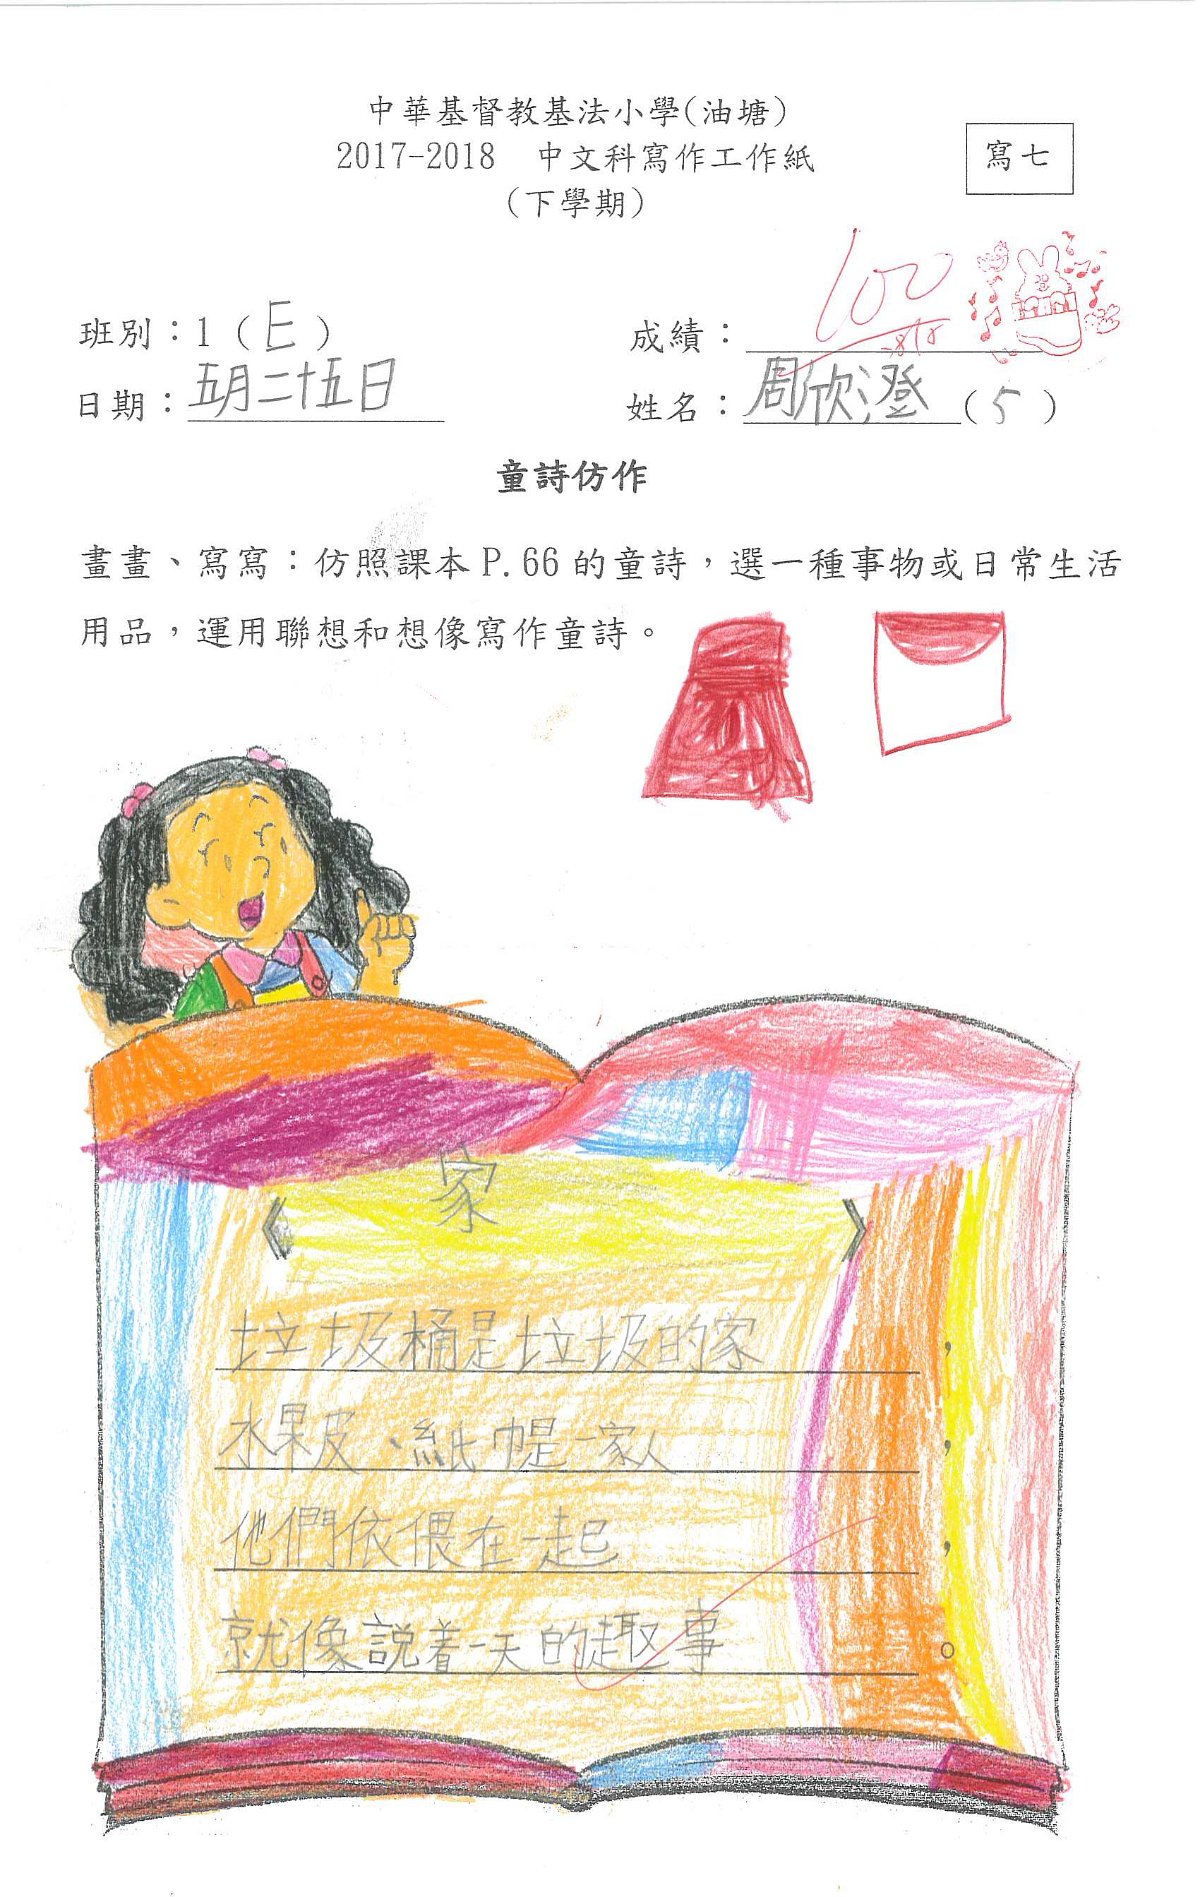 中華基督教基法小學(油塘)
2017-2018 中文科寫作工作紙
寫七
(下學期)
班別：1（E）
成績：100
日期：五月二十五日
姓名：周欣澄（5）
童詩仿作
畫畫、寫寫：仿照課本P.66的童詩，選一種事物或日常生活
用品，運用聯想和想像寫作童詩。
《家》
垃圾桶是垃圾的家，
水果皮、紙巾是一家人，
他們依偎在一起，
就像説着一天的趣事。